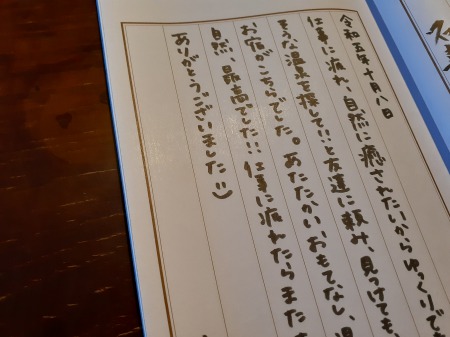 令和五年十月八日
仕事に疲れ、自然に癒されたいからゆっくりで
そうな温泉を探してい!と友達に頼み、見つけても
お宿がこちらでした。あたたかいおもてなし、温
自然、最高でした!!仕事に疲れたらまた
ありがとうございました!!